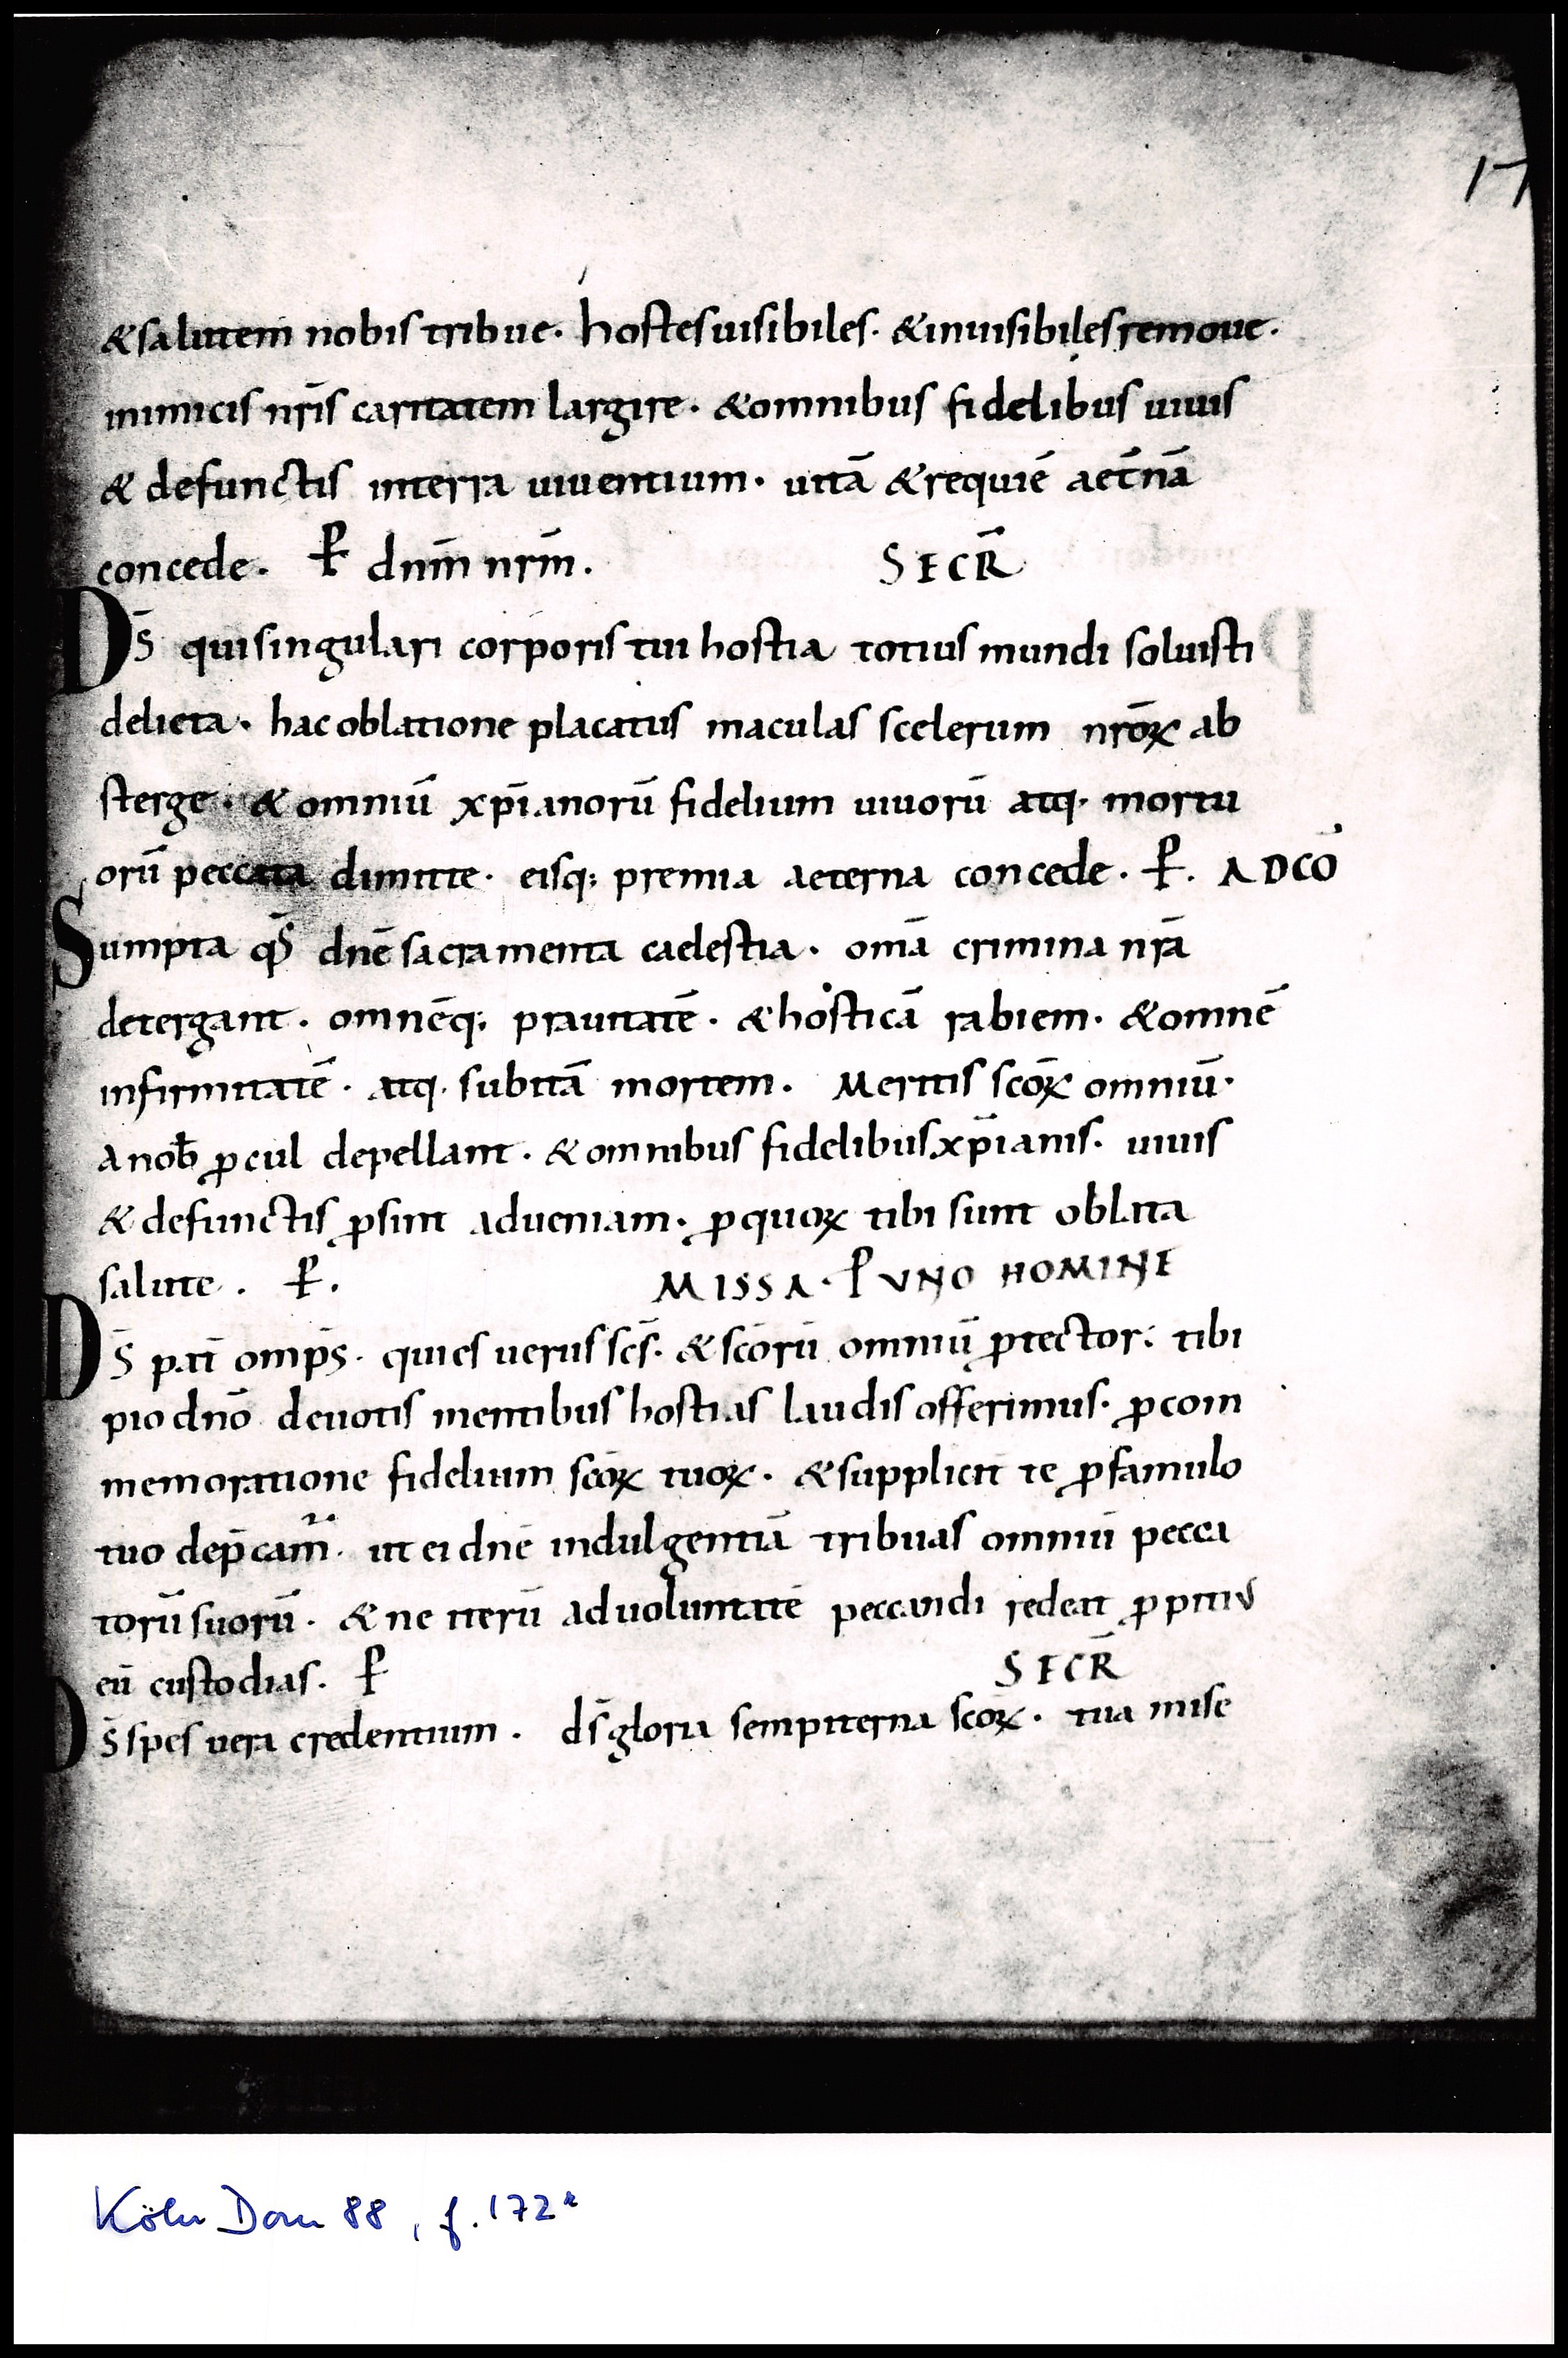 17
&salutem nobis tribue. hostes uisibiles. &inuisibiles remoue.
inimicis nr̄is caritatem largire. &omnibus fidelibus uiuis
& defunctis interra uiuentium. uitā &requiē aet̄nā
concede. P̶ dnm̄ nrm̄. SECR̄
DS̄ qui singulari corporis tui hostia totius mundi soluisti
delicta. hac oblatione placatus maculas scelerum nr̄oꝝ ab
sterge. & omniū xp̄ianorū fidelium uiuorū atq· mortu
orū peccata dimitte. eisq; premia aeterna concede. P̶. ADCŌ
Sumpta qs̄ dnē sacramenta caelestia. omā crimina nrā
detergant. omnēq; prauitatē. & hosticā rabiem. &omnē
infirmitatē. atq· subitā mortem. Meritis scōꝝ omniū.
a nob̄ ꝓcul depellant. & omnibus fidelibus xp̄ianis. uiuis
& defunctis ꝓsint adueniam. ꝓ quoꝝ tibi sunt oblata
salute. P̶. MISSA. P̶ VNO HOMINE
DS̄ pat̄ omp̄s. qui es uerus scs̄. & scōrū omniū ꝓtector; tibi
pio dnō deuotis mentibus hostias laudis offerimus. ꝓ com
memoratione fidelium scōꝝ tuoꝝ. &supplicit te ꝓ famulo
tuo dep̄cam̄. ut ei dnē indulgentiā tribuas omniū pecca
torū suorū. & ne iterū ad uoluntatē peccandi redeat ꝓpitiꝰ
eū custodias. P̶ SECR̄
DS̄ spes uera credentium. ds̄ gloria sempiterna scōꝝ. tua mise
Köln Dom 88, f. 172ʳ